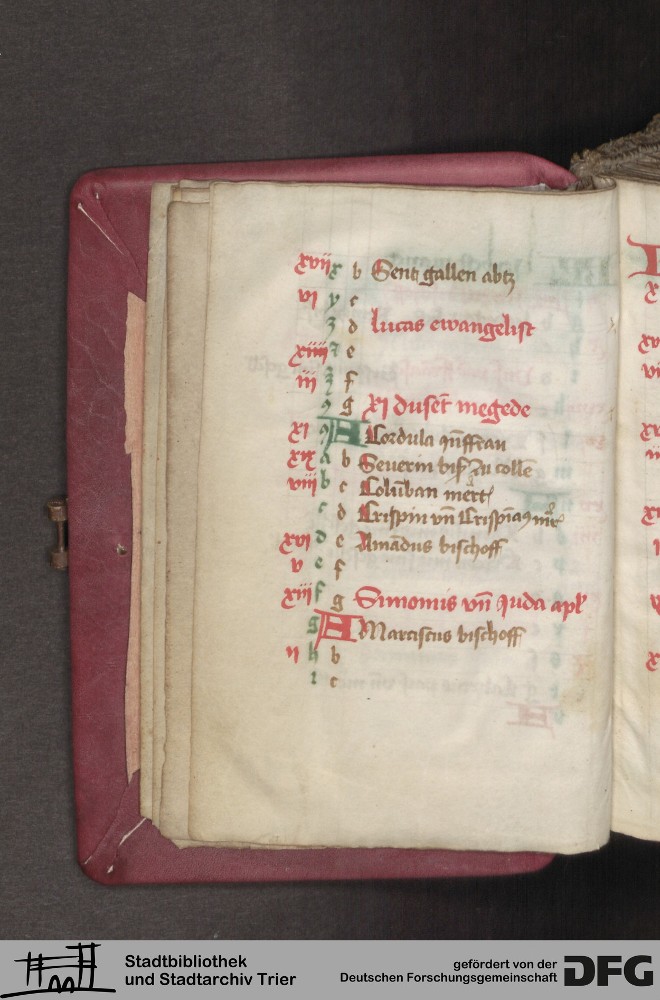 xvii x b Sent gallen abtz
vi y c
z d lucas ewangelist
xiiii e
iii f
g xi duset megede
xi A Cordula
xix a b Seuerin bisch zu colle
viii b c Colūban
c d Crispin vn̄
xvi d e Amādus bischoff
v e f
xiii f g Simonis vn̄ Juda apl
g A Marciscus bischoff
ii h b
i c
Stadtbibliothek
und Stadtarchiv Trier
gefördert von der
Deutschen Forschungsgemeinschaft
DFG